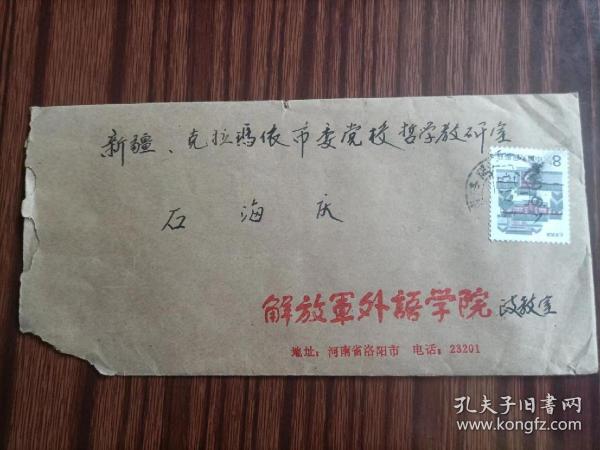 新疆、克拉玛依市委党校哲学教研室
8
石海庆
解放軍外語学院 政教室
地址：河南省洛阳市 电话：23201
孔夫子旧书网
www.kongfz.com